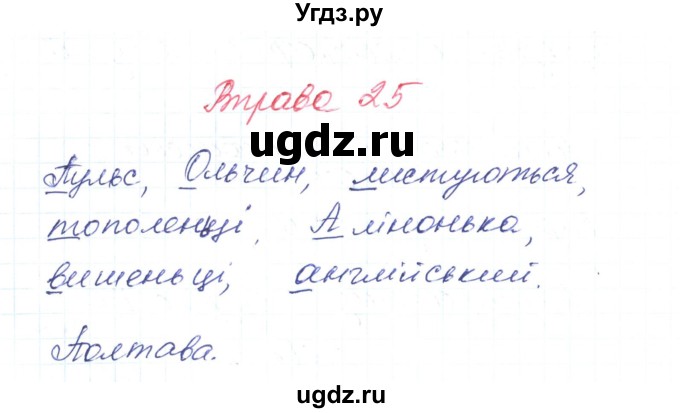 Угдз.ру
Вправа 25
ugdz.ru
Пульс, Ольчин, листуються,
тополенці, Алінонька,
вишеньці, англійський.
Полтава.
ugdz.ru